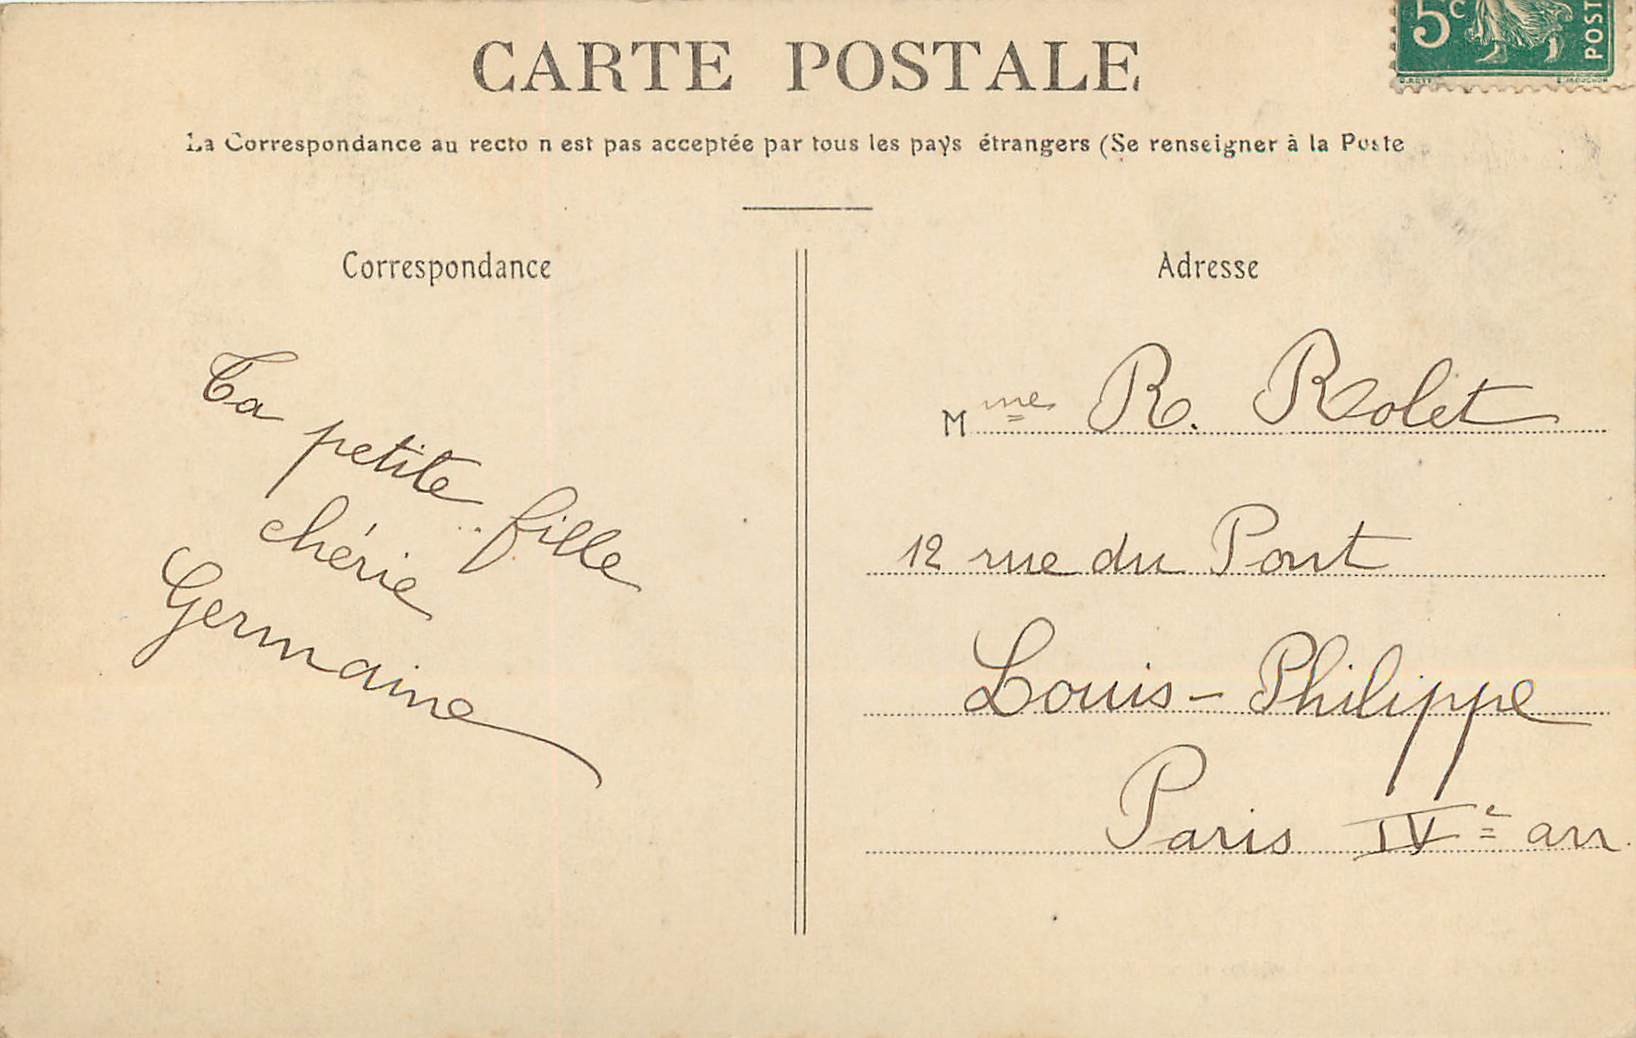 5c
POST
CARTE POSTALE
La Correspondance au recto n est pas acceptée par tous les pays étrangers (Se renseigner à la Poste
Correspondance
Ta petite fille
chérie
Germaine
Adresse
Mme R. Rolet
12 rue du Pont
Louis-Philippe
Paris IVe arr.